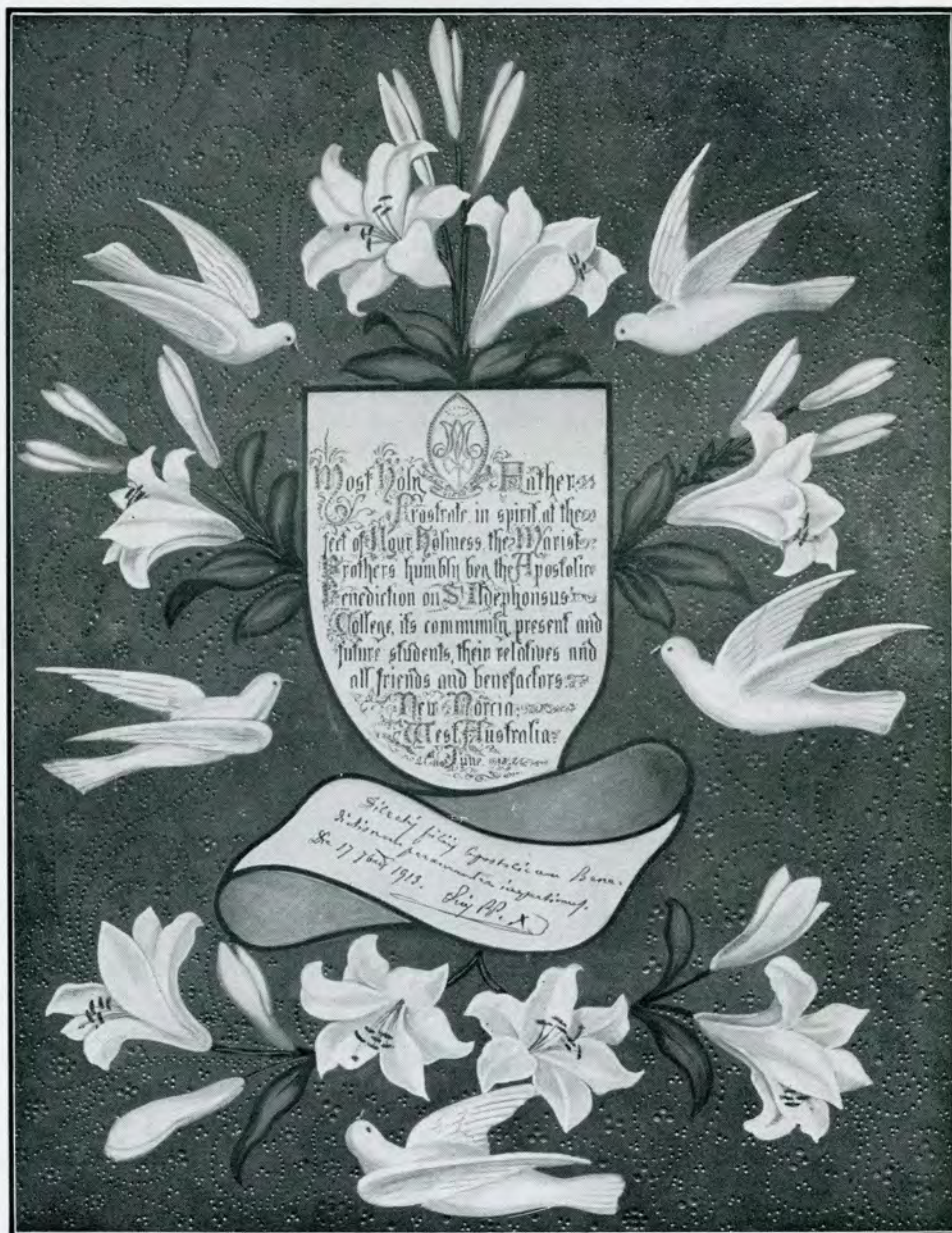 Most Holy Father
Prostrate in spirit at the
feet of Your Holiness the Marist
Brothers humbly beg the Apostolic
Benediction on St Ildephonsus
College, its community, present and
future students, their relatives and
all friends and benefactors
New Norcia
West Australia
June
Apostolicam Bene-
Die 17 7bris 1913. Pius PP. X